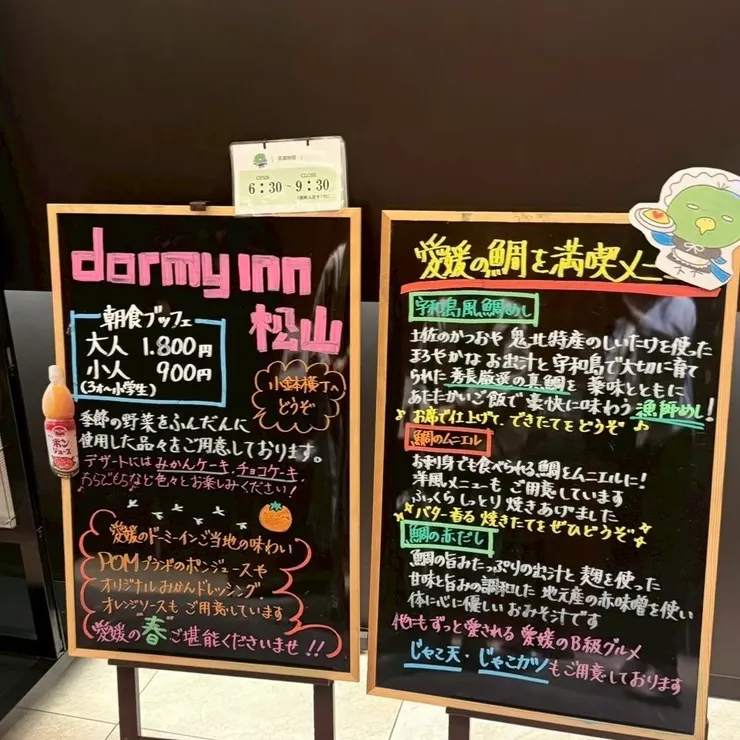 営業時間
OPEN
CLOSE
6:30~9:30
dormy inn
松山
朝食ブッフェ
大人 1.800円
小人 900円
(3才~小学生)
小鉢横丁の
どうぞ
季節の野菜をふんだんに
使用した品々をご用意しております。
デザートには みかんケーキ、チョコケーキ、
わらびもちなど色々とお楽しみください!
愛媛のドーミーインご当地の味わい
POMブランドのポンジュースや
オリジナルみかんドレッシング、
オレンジソースも ご用意しています
愛媛の"春"ご堪能くださいませ!!
ポン
ジュース
愛媛の鯛を満喫メニ
宇和島風鯛めし
土佐のかつおや 鬼北特産のしいたけを使った
まろやかな お出汁と 宇和島で大切に育て
られた 秀長厳選の真鯛を 薬味とともに
あたたかいご飯で 豪快に味わう 漁師めし!
♪お席で仕上げて、できたてを どうぞ♪
鯛のムニエル
お刺身でも食べられる鯛をムニエルに!
洋風メニューも ご用意しています
ふっくら しっとり 焼きあげました
バター香る 焼きたてを ぜひどうぞ
鯛の赤だし
鯛の旨みたっぷりの出汁と 麹を使った
甘味と旨みの調和した 地元産の赤味噌を使い
体に心に優しい おみそ汁です
他にも ずっと愛される 愛媛のB級グルメ
じゃこ天・じゃこカツもご用意しております